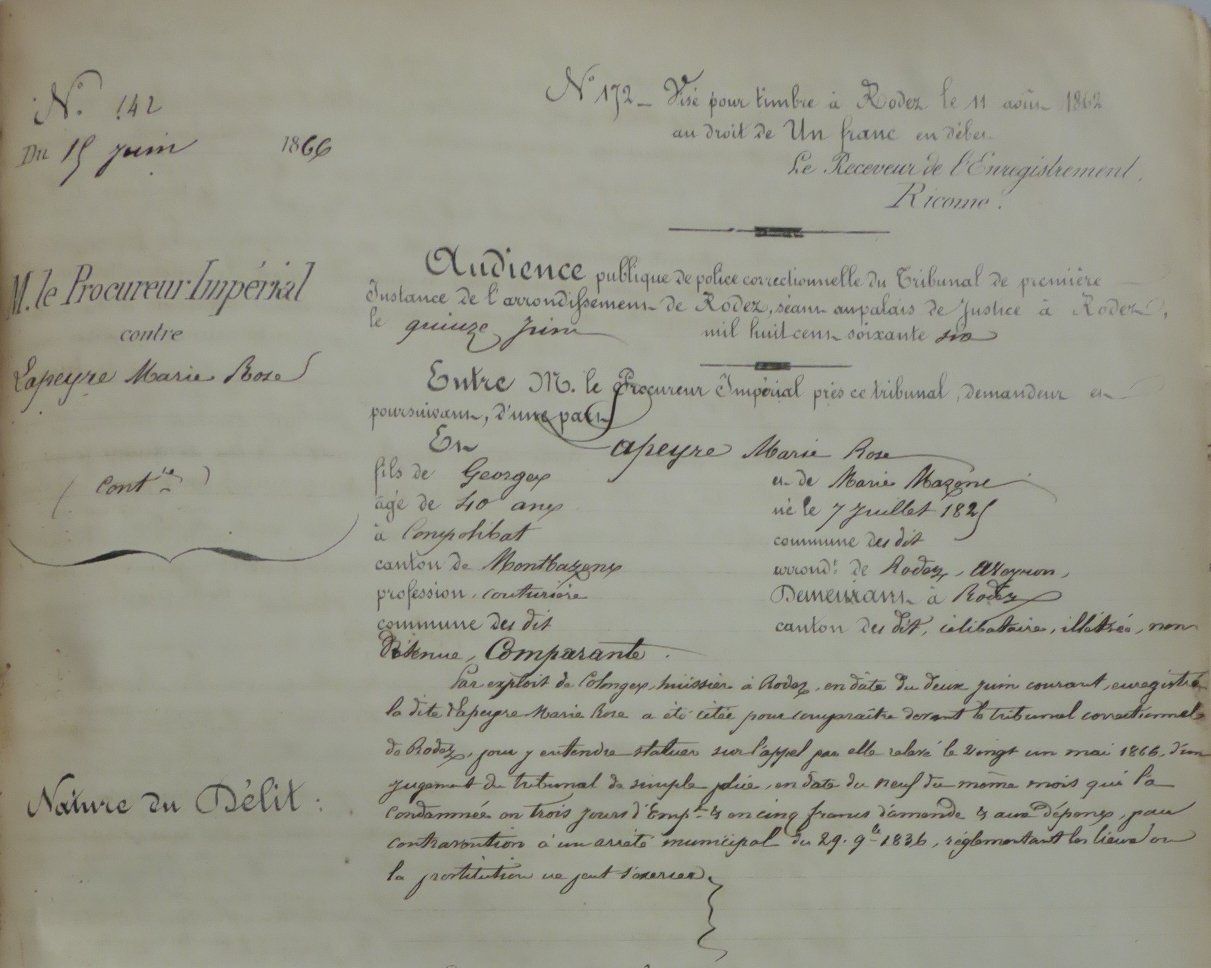 N° 142
Du 15 Juin 1866
N° 172 - Visé pour timbre à Rodez le 11 août 1862
au droit de Un franc en débet
Le Receveur de l'Enregistrement,
Ricome.
M. le Procureur Impérial
contre
Lapeyre Marie Rose
( Cont.ion )
Nature du Délit :
Audience publique de police correctionnelle du Tribunal de première
Instance de l'arrondissement de Rodez, séant au palais de Justice à Rodez,
le quinze Juin mil huit cent soixante six
Entre M. le Procureur Impérial près ce tribunal, demandeur et
poursuivant, d'une part
Et Lapeyre Marie Rose
fils de Georges et de Marie Mazène
âgé de 40 ans né le 7 Juillet 1825
à Compolibat commune du dit
canton de Montbazens arrond.t de Rodez, Aveyron,
profession, couturière Demeurant à Rodez
commune du dit canton du dit, célibataire, illétrée, non
Détenue, Comparante.
Par exploit de Colonges, huissier à Rodez, en date du deux juin courant, enregistré
la dite Lapeyre Marie Rose a été citée pour comparaître devant le tribunal correctionnel
de Rodez, pour y entendre statuer sur l'appel par elle relevé le vingt un mai 1866, d'un
jugement du tribunal de simple police, en date du neuf du même mois qui la
condamnée en trois jours d'Emp.t & en cinq francs d'amende & aux Dépens, pour
contravention à un arrêté municipal du 29. 9.bre 1836, réglementant les lieux ou
la prostitution ne peut s'exercer